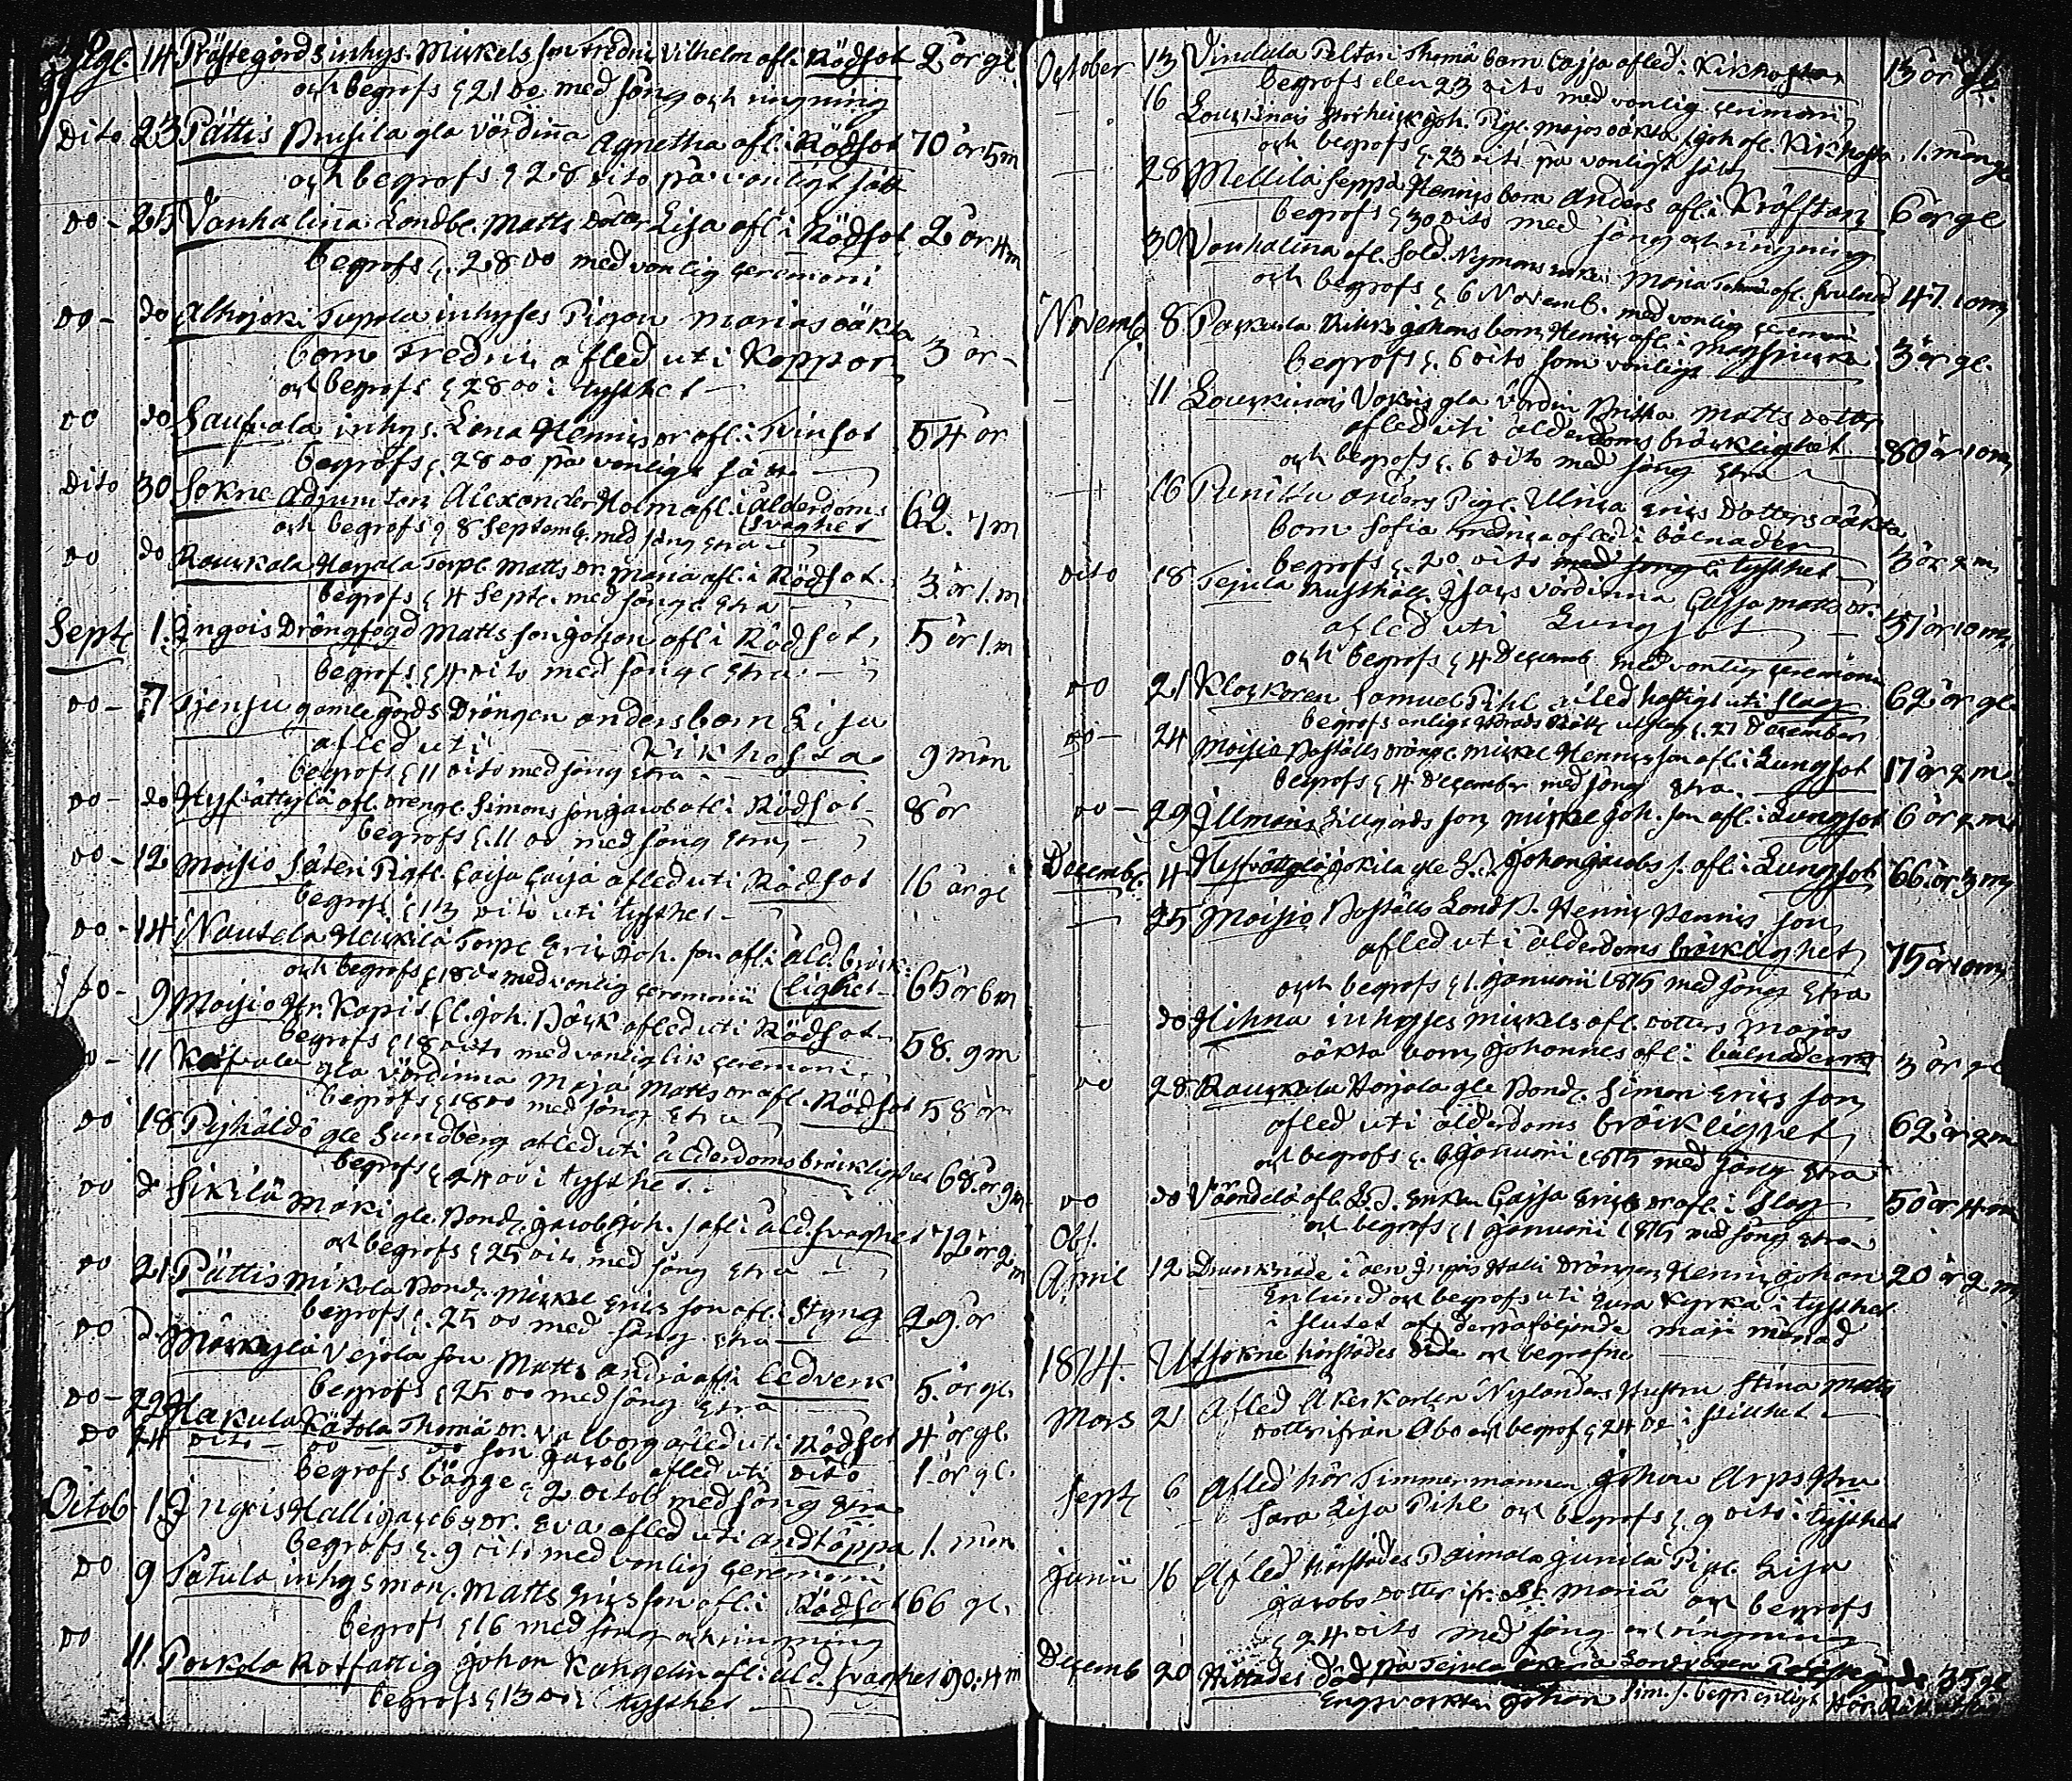 14 Prästegårds inhys. Mickels son Fredric Vilhelm afl. i Rödsot 2 år gl
och begrofs d 21 do med sång och ringning
Dito 23 Pättis Prusila gla Värdiña Agnetha afl. i Rödsot 70 år 5 m
och begrofs d 28 dito på vanligt sätt
do - 25 Vanhaliña Landb. Matts dotter Lisa afl. i Rödsot 2 år 4 m
begrofs d. 28 do med vanlig ceremoni
do - do Alhojoki Tupola inhyses Pigan Marias oäkta
barn Fredric afled uti Koppor 3 år -
och begrofs d 28 do i tysthet
do do inhys. Lena Henrics dr afl. i Tvinsot 54 år
begrofs d. 28 do på vanligt sätt
Dito 30 Sokne Adjuncten Alexander Holm afl. i ålderdoms 62. 7 m
och begrofs d 8 Septemb. med sång etra svaghet
do do Rauckala Harjala Torp. Matts dr. Maria afl. i Rödsot 3 år 1. m
begrofs d 4 Septr. med sång etra
Septr 1. Ingois Drängfogd Matts son Johan afl. i Rödsot, 5 år 1. m
begrofs d 4 dito med sång etra
do - 7 Tjensu gamlegårds Drängen Anders barn Lisa
afled uti Kikhosta 9 mån
begrofs d 11 dito med sång etra
do - do afl. dreng. Simons son Jacob afl. i Rödsot 8 år
begrofs d. 11 do med sång etra
do - 12 Moisio Säteri Caisa afled uti Rödsot 16 år gl
begrofs d 13 dito uti tysthet
do - 14 Nautela Heickilä Torp. Eric Joh. son afl. i åld. bräck-
och begrofs d 18 do med vanlig ceremonii lighet 65 år 6 m
do - 9 Moisio Hr. Kapit Joh. afled uti Rödsot 58. 9 m
begrofs d 18 dito med vanliglig ceremoni
11 gla värdinna Maja Matts dr afl. i Rödsot 58 år
begrofs d 18 do med sång etra
do 18 Pyhäldö gle Sundberg afled uti ålderdoms bräcklighet 68. år 9 m
begrofs d. 24 do i tysthet
do d Sikilä Maki gle Bond. Jacob Joh. s. afl. i åld. svaghet 72 år 2 m
och begrofs d 25 dito med sång etra
do 21 Pättis Mikola Bond. Mickel Erics son afl. i Styng 29 år
begrofs d. 25 do med sång etra
do d. Vejola son Matts afl. i Ledverk 5. år gl.
begrofs d 25 do med sång etra
do - 22 Hakula Kätola Thomä dr. Valborg afled uti Rödsot 4 år gl.
do 24 dito - do - do son Jacob afled uti dito 1. år gl.
begrofs bägge d 2 Octob med sång etra
Octob 1. Ingois Halli Jacobs dr. Eva afled uti andtäppa 1. mån
begrofs d. 9 dito med vanlig ceremoni
do 9 Tatula inhysman. Matts Erics son afl. i Rödsot 66 gl.
begrofs d 16 med sång och ringning
do 11. Rotfattig Johan Kangelin afl. i åld. svaghet 90. 4 m
begrofs d 13 do i tysthet
October 13 Vindala Peltari Thomä barn Cajsa afled i Kikhostan 13 år gl.
begrofs den 23 dito med vanlig cerimoni
16 Pig. Majas oäkta Joh. afl. Kikhosta 1. mån gl
och begrofs d. 23 dito på vanligt sätt
28 Mellilä Seppä Henrics barn Anders afl. i Kräfftan 6 år gl
begrofs d 30 dito med sång och ringning
30 Vanhalina afl. Sold. Nymans enka Maria afl. 47. 10 m
och begrofs d. 6 Novemb. med vanlig ceremoni
Novemb. 8 Johans barn Henric afl. i 3 år gl.
begrofs d. 6 dito som vanligt
11 gla värdin Britha Matts dotter
afled uti ålderdoms bräcklighet. 80 år 10 m
och begrofs d. 6 dito med sång etra
16 Anders Pig. Ulrica Erics Dotters oäkta
barn Sofia Fredrica afled i bålnader 3 år 2 m
begrofs d. 20 dito med sång i tysthet
dito 18 Tejula Rusthåll. Isacs värdinna Cajsa Matts dr. 37 år 10 m
afled uti Lungsot
och begrofs d 4 Decemb. med vanlig ceremoni
do 21 Klockaren Samuel Pihl afled hastigt uti slag 62 år gl.
begrofs enligt Härads Rätt utslag d. 27 December
do - 24 Moisio Boställs dräng. Mickel Henrics son afl. i Lungsot 17 år 2 m.
begrofs d 4 December med sång etra
do - 29 Illmaris Lillgårds son Mickel Joh. son afl. i Lungsot 6 år 2 m
Decemb. 4 Jokila gle Johan Jacobs s. afl. i Lungsot 66 år 3 m
- 25 Moisio Boställs Landb. Henric Henrics son
afled uti ålderdoms bräcklighet 75 år 10 m
och begrofs d 1. Januarii 1815 med sång etra
- do Hihna inhyses Mickels afl. dotters Majas
oäkta barn Johannes afl. i bålnaderna 3 år gl
do 28 Rauckala Harjala gle Bond. Simon Erics son
afled uti ålderdoms bräcklighet 62 år 2 m
och begrofs d. 6 Januarii 1815 med sång etra
do do afl. enka Cajsa Erics dr afl. i Slag 50 år 4 m
och begrofs d 1 Januarii 1815 med sång etra
Obs.
April 12 Drunknade i åen Ingois Halli Drängen Henric Johan 20 år 2 m
Enlund och begrofs uti Eura Kyrka i tysthet
i slutet af derpåföljande maji månad
1814. Utsokne härstädes döde och begrafne
Mars 21 Afled Åkerkarlen Nylanders Hustru Stina Matts
dotter ifrån Åbo och begrof d 24 do i stillhet
Septr 6 Afled här Timmermannen Johan Arps fru
Sara Lisa Pihl och begrofs d. 9 dito i tysthet
Junii 16 Afled härstädes Paimala Junila Pig. Lisa
Jacobs dotter ifr. St. Mariä och begrofs
d 24 dito med sång och ringning
Decemb 20 Hittades död på Tejula Landvägen 35 gl
Johan Sim. s. begr. enligt